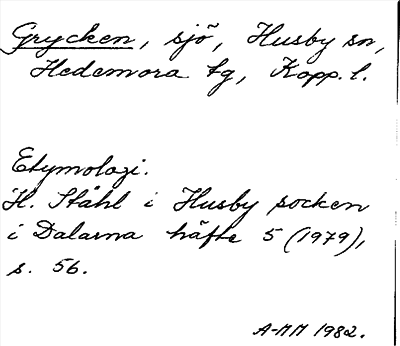 Grycken, sjö, Husby sn,
Hedemora tg, Kopp. l.
Etymologi.
H. Ståhl i Husby socken
i Dalarna häfte 5 (1979),
s. 56.
A-MM 1982.